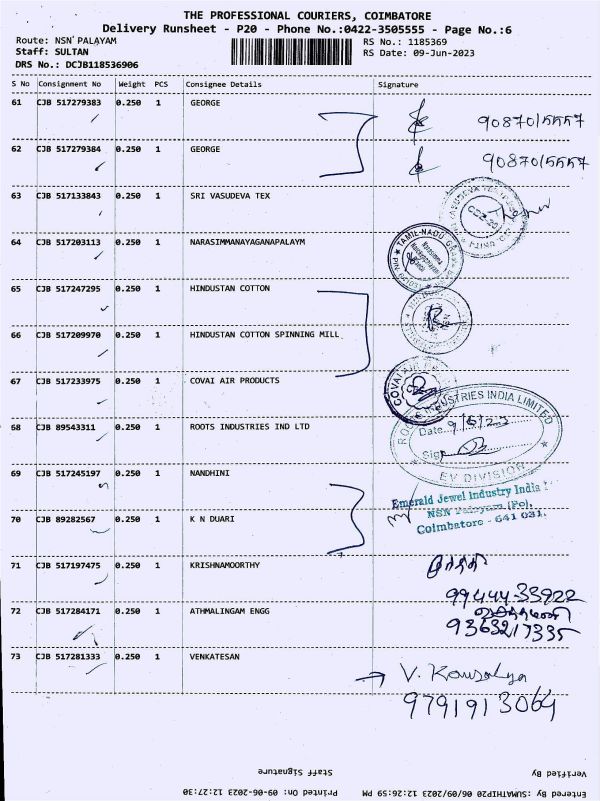 THE PROFESSIONAL COURIERS, COIMBATORE
Delivery Runsheet - P20 - Phone No.:0422-3505555 - Page No.:6
Route: NSN PALAYAM
RS No.: 1185369
Staff: SULTAN
RS Date: 09-Jun-2023
DRS No.: DCJB118536906
S No Consignment No Weight PCS Consignee Details Signature
61 CJB 517279383 0.250 1 GEORGE
62 CJB 517279384 0.250 1 GEORGE
63 CJB 517133843 0.250 1 SRI VASUDEVA TEX
64 CJB 517203113 0.250 1 NARASIMMANAYAGANAPALAYM
TAMIL NADU
65 CJB 517247295 0.250 1 HINDUSTAN COTTON
66 CJB 517209970 0.250 1 HINDUSTAN COTTON SPINNING MILL
67 CJB 517233975 0.250 1 COVAI AIR PRODUCTS
COVAI AIR
68 CJB 89543311 0.250 1 ROOTS INDUSTRIES IND LTD
INDUSTRIES INDIA LIMITED
Date
Sign
EV DIVISION
69 CJB 517245197 0.250 1 NANDHINI
Emerald Jewel Industry India
NSN Palayam (Po),
Coimbatore - 641 031.
70 CJB 89282567 0.250 1 K N DUARI
71 CJB 517197475 0.250 1 KRISHNAMOORTHY
99444-33922
72 CJB 517284171 0.250 1 ATHMALINGAM ENGG
9363217335
73 CJB 517281333 0.250 1 VENKATESAN
V. Kousalya
9791913064
Staff Signature
Verified By
Printed On: 09-06-2023 12:27:30
Entered By :SUMATHIP20 06/09/2023 12:26:59 PM